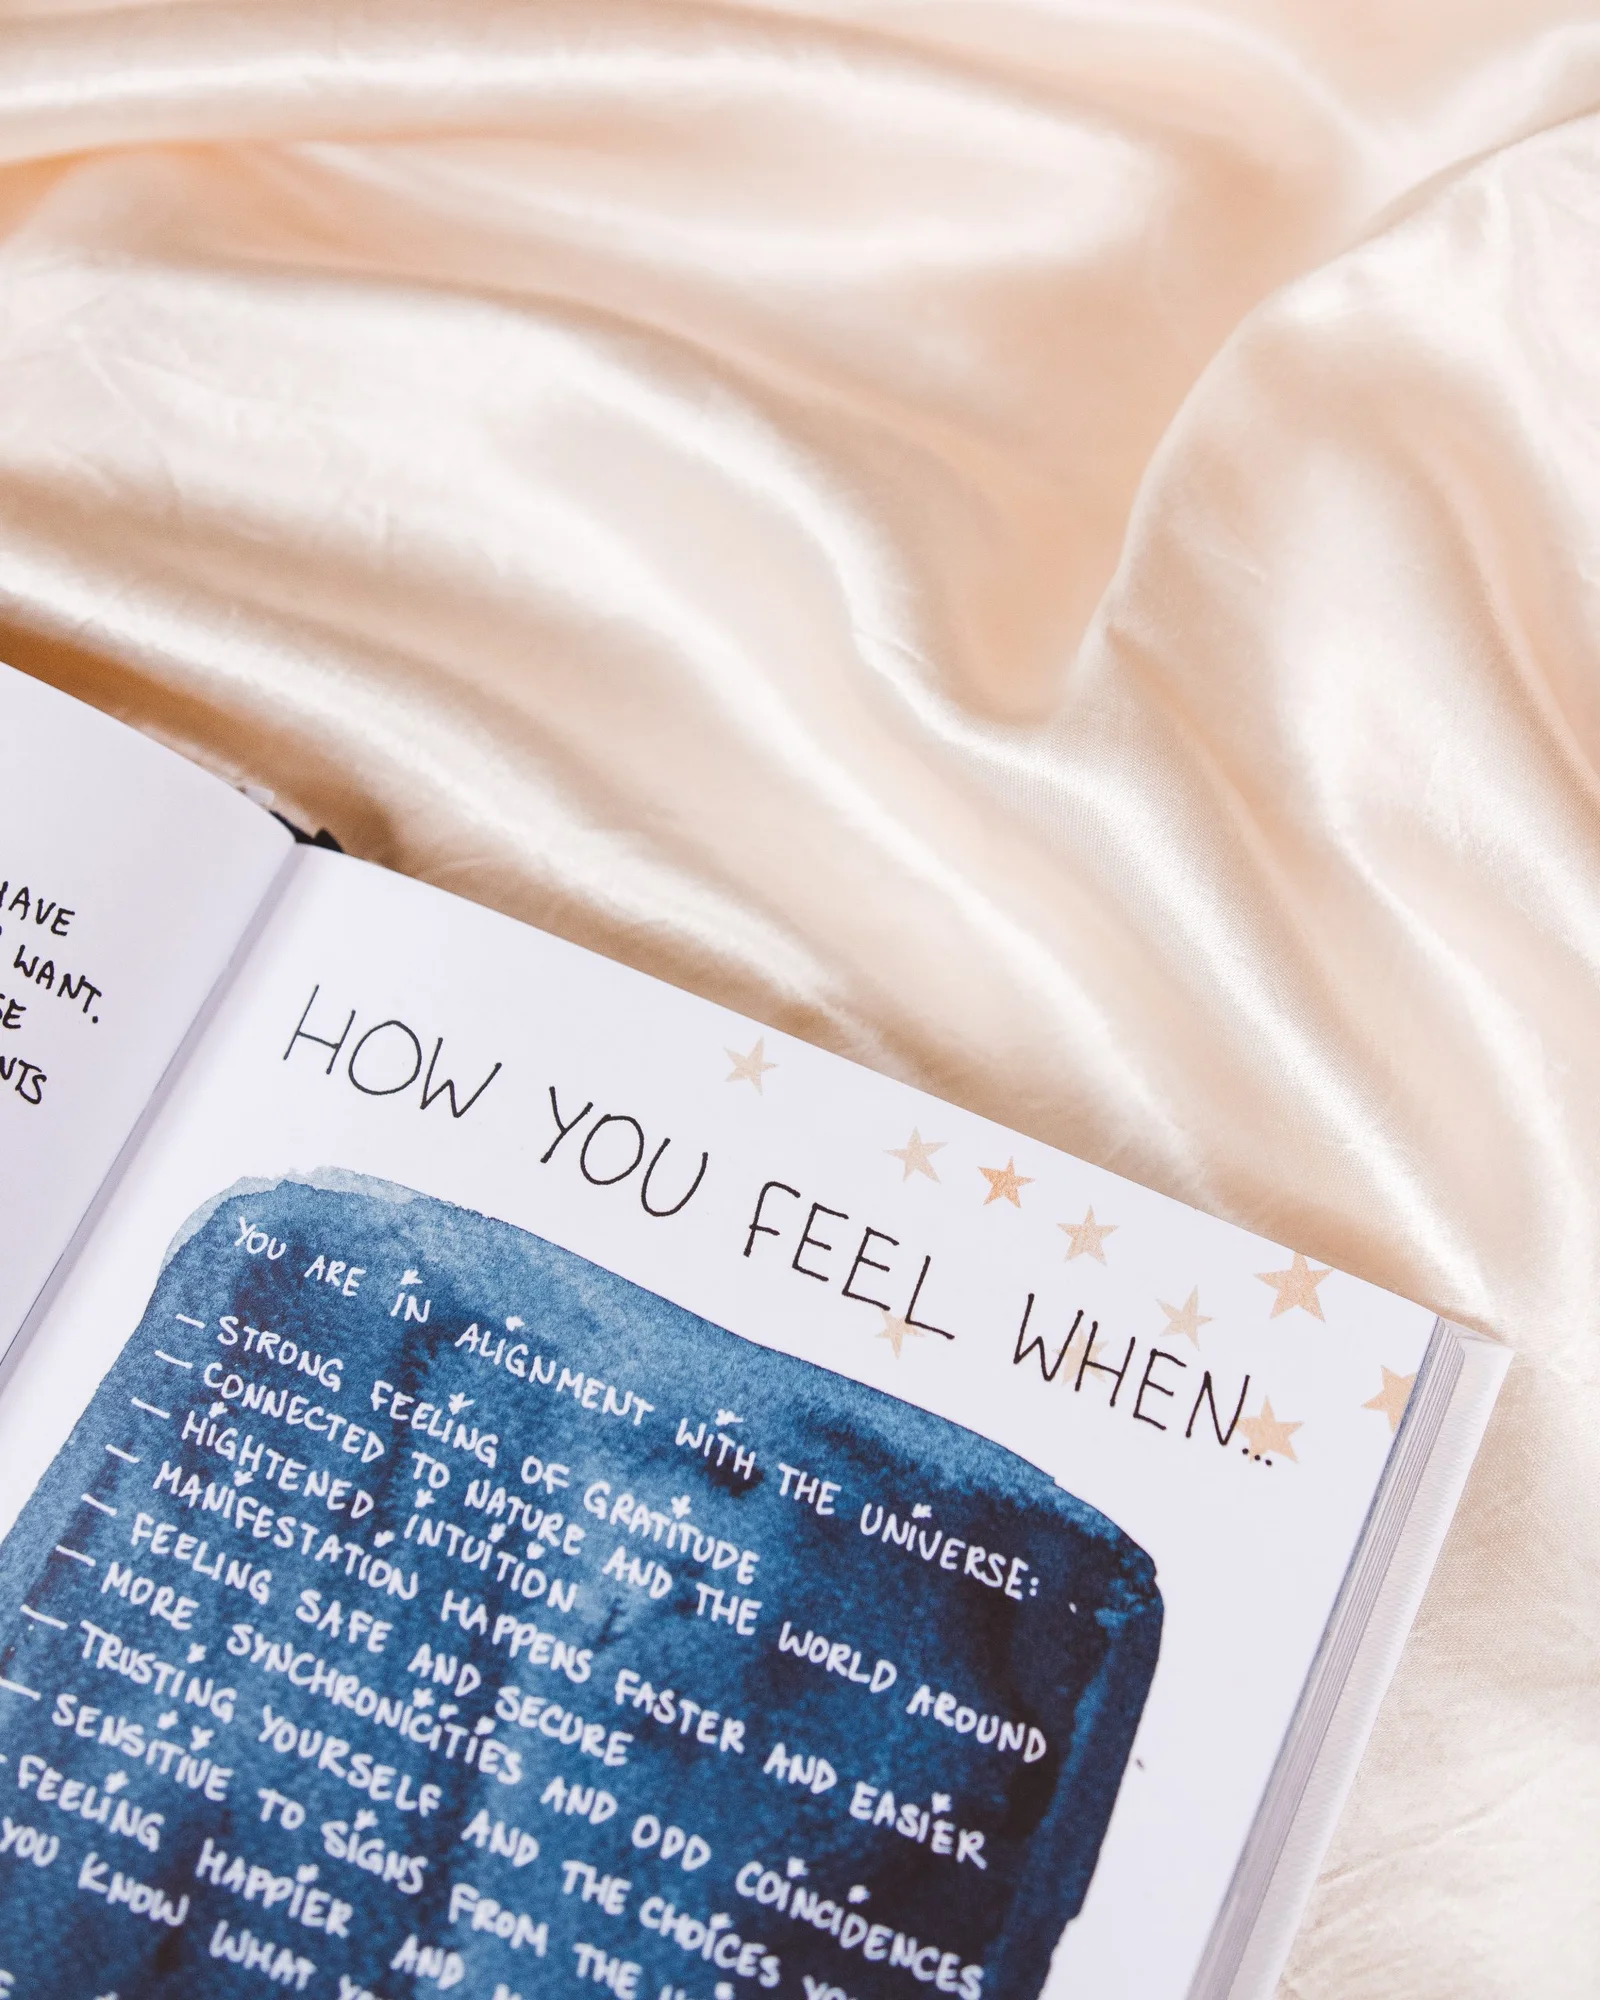 HAVE
WANT.
SE
NTS
HOW YOU FEEL WHEN...
YOU ARE IN ALIGNMENT WITH THE UNIVERSE:
— STRONG FEELING OF GRATITUDE
— CONNECTED TO NATURE AND THE WORLD AROUND
— HIGHTENED INTUITION
— MANIFESTATION HAPPENS FASTER AND EASIER
— FEELING SAFE AND SECURE
— MORE SYNCHRONICITIES AND ODD COINCIDENCES
— TRUSTING YOURSELF AND THE CHOICES
— SENSITIVE TO SIGNS FROM THE
- FEELING HAPPIER AND
YOU KNOW WHAT